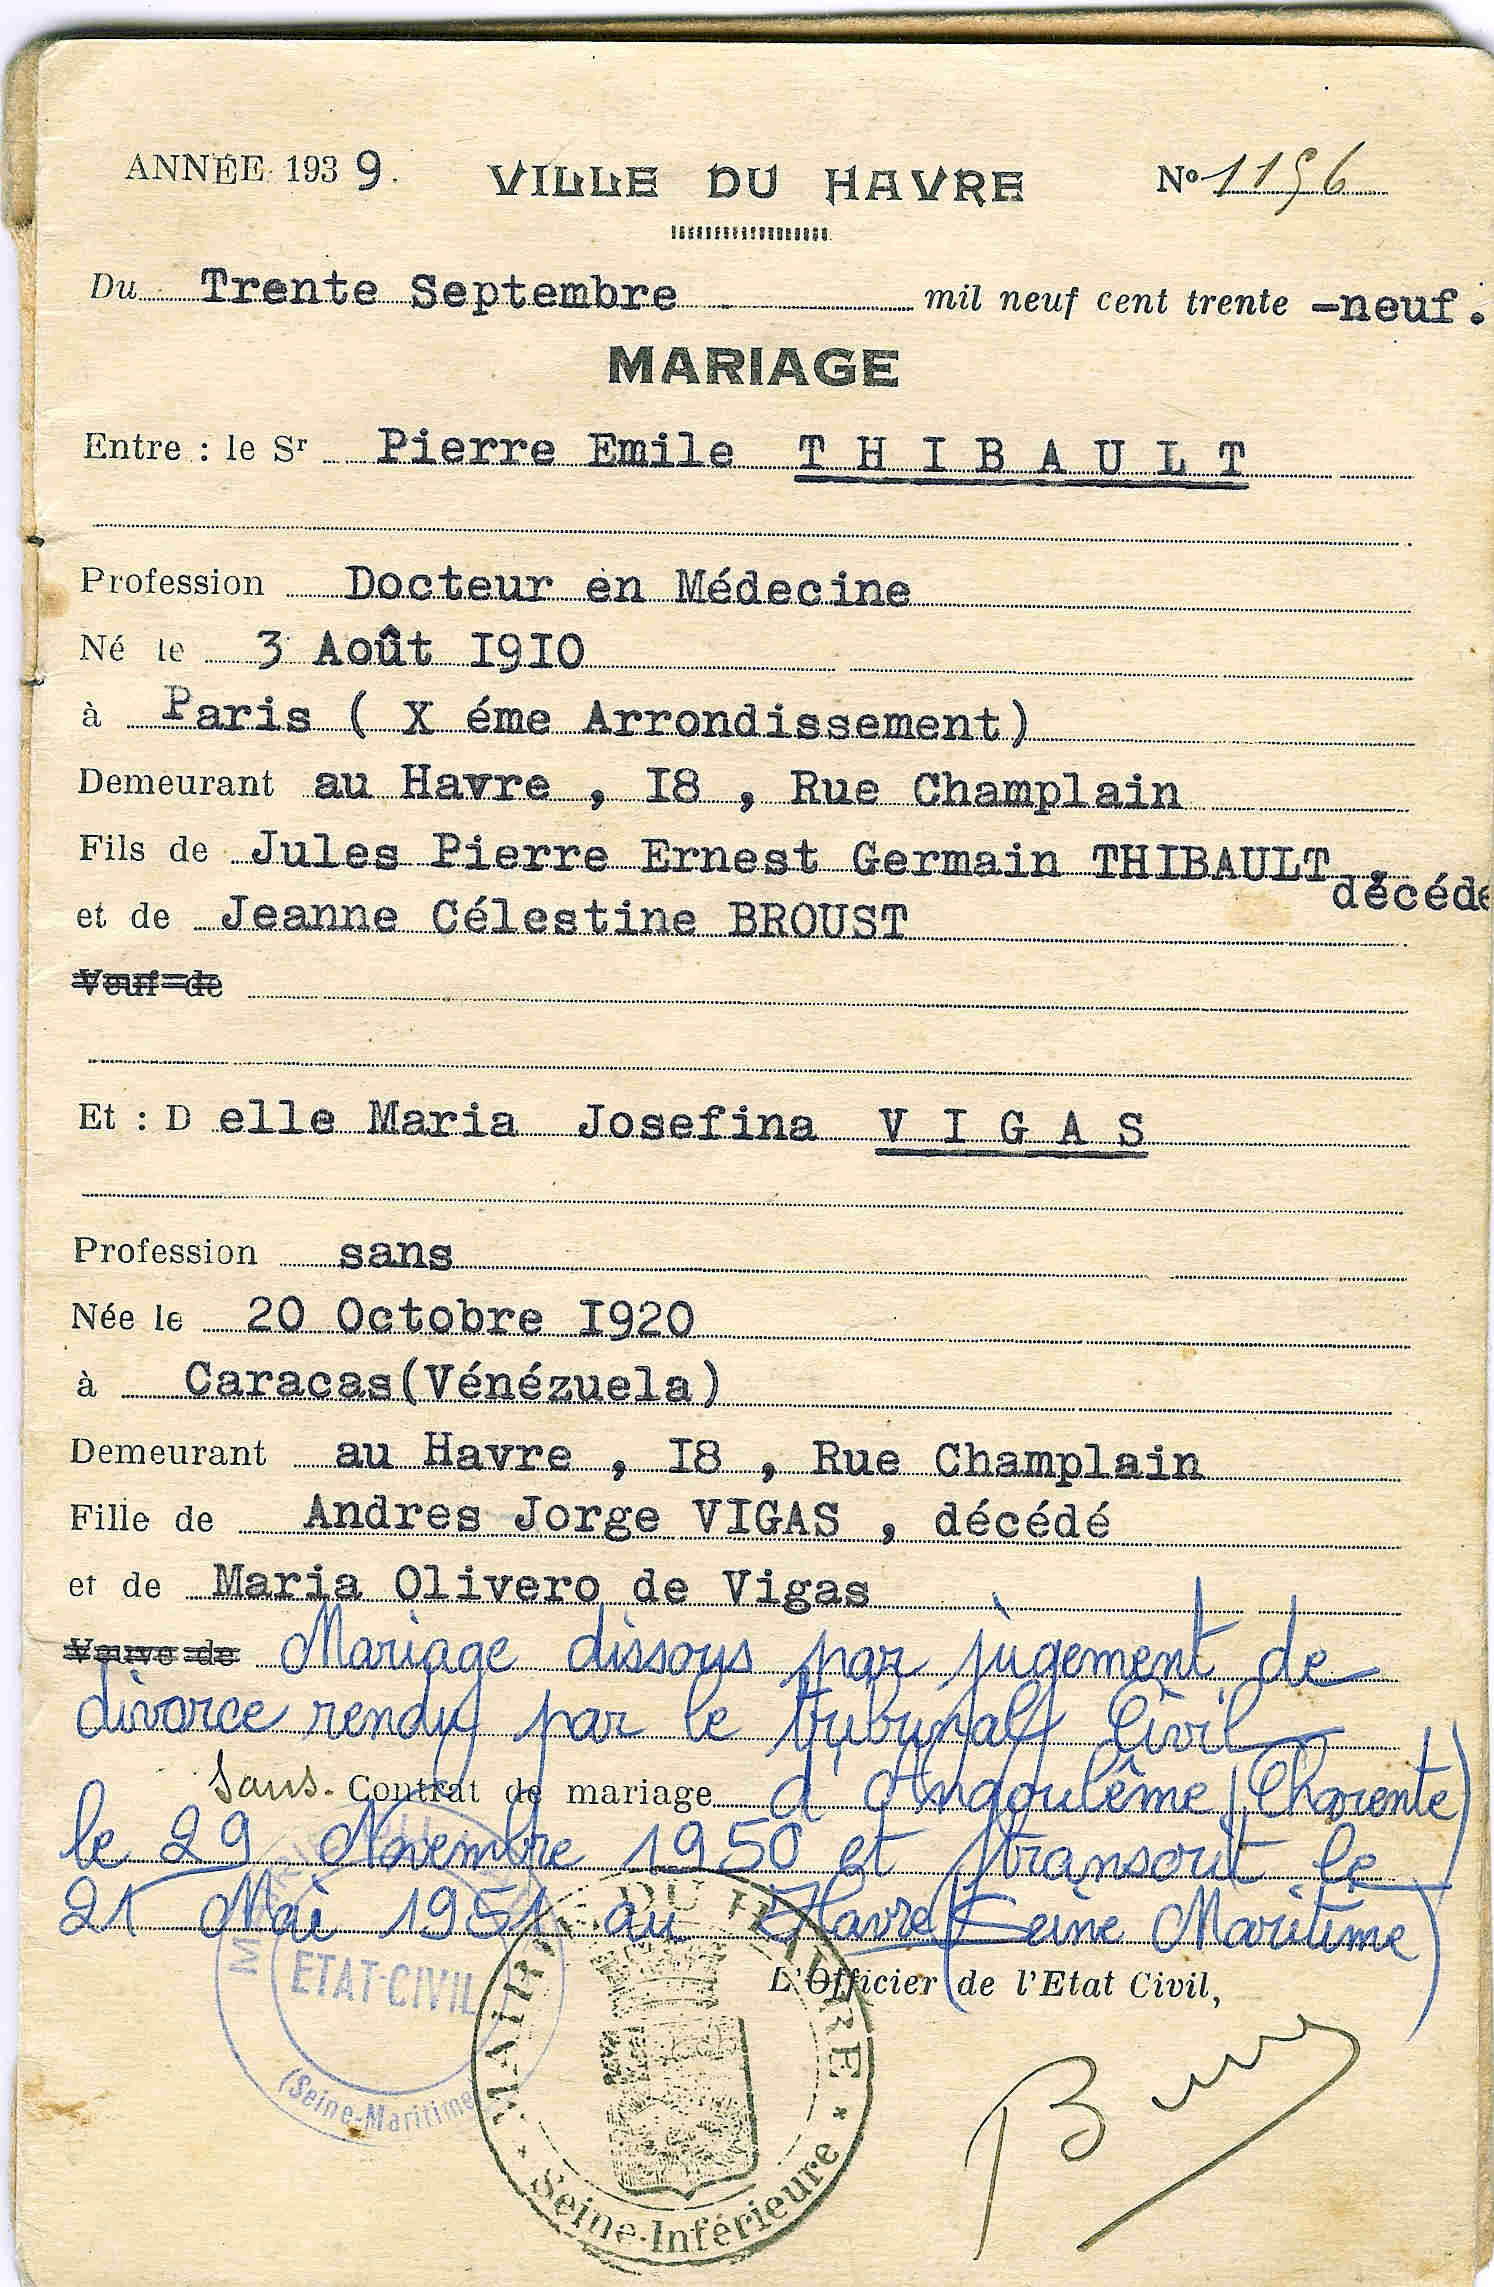 ANNÉE 1939. VILLE DU HAVRE No 1156
Du Trente Septembre mil neuf cent trente -neuf.
MARIAGE
Entre : le Sr Pierre Emile THIBAULT
Profession Docteur en Médecine
Né le 3 Août I9I0
à Paris ( X éme Arrondissement)
Demeurant au Havre , I8 , Rue Champlain
Fils de Jules Pierre Ernest Germain THIBAULT , décédé
et de Jeanne Célestine BROUST
Veuf de
Et : D elle Maria Josefina VIGAS
Profession sans
Née le 20 Octobre I920
à Caracas(Vénézuela)
Demeurant au Havre , I8 , Rue Champlain
Fille de Andres Jorge VIGAS , décédé
et de Maria Olivero de Vigas
Veuve de Mariage dissous par jugement de
divorce rendu par le tribunal Civil
Sans Contrat de mariage d'Angoulême (Charente)
le 29 Novembre 1950 et transcrit le
21 Mai 1951 au Havre (Seine Maritime)
L'Officier de l'Etat Civil,
ETAT-CIVIL
(Seine-Maritime
MAIRIE DU HAVRE
Seine-Inférieure